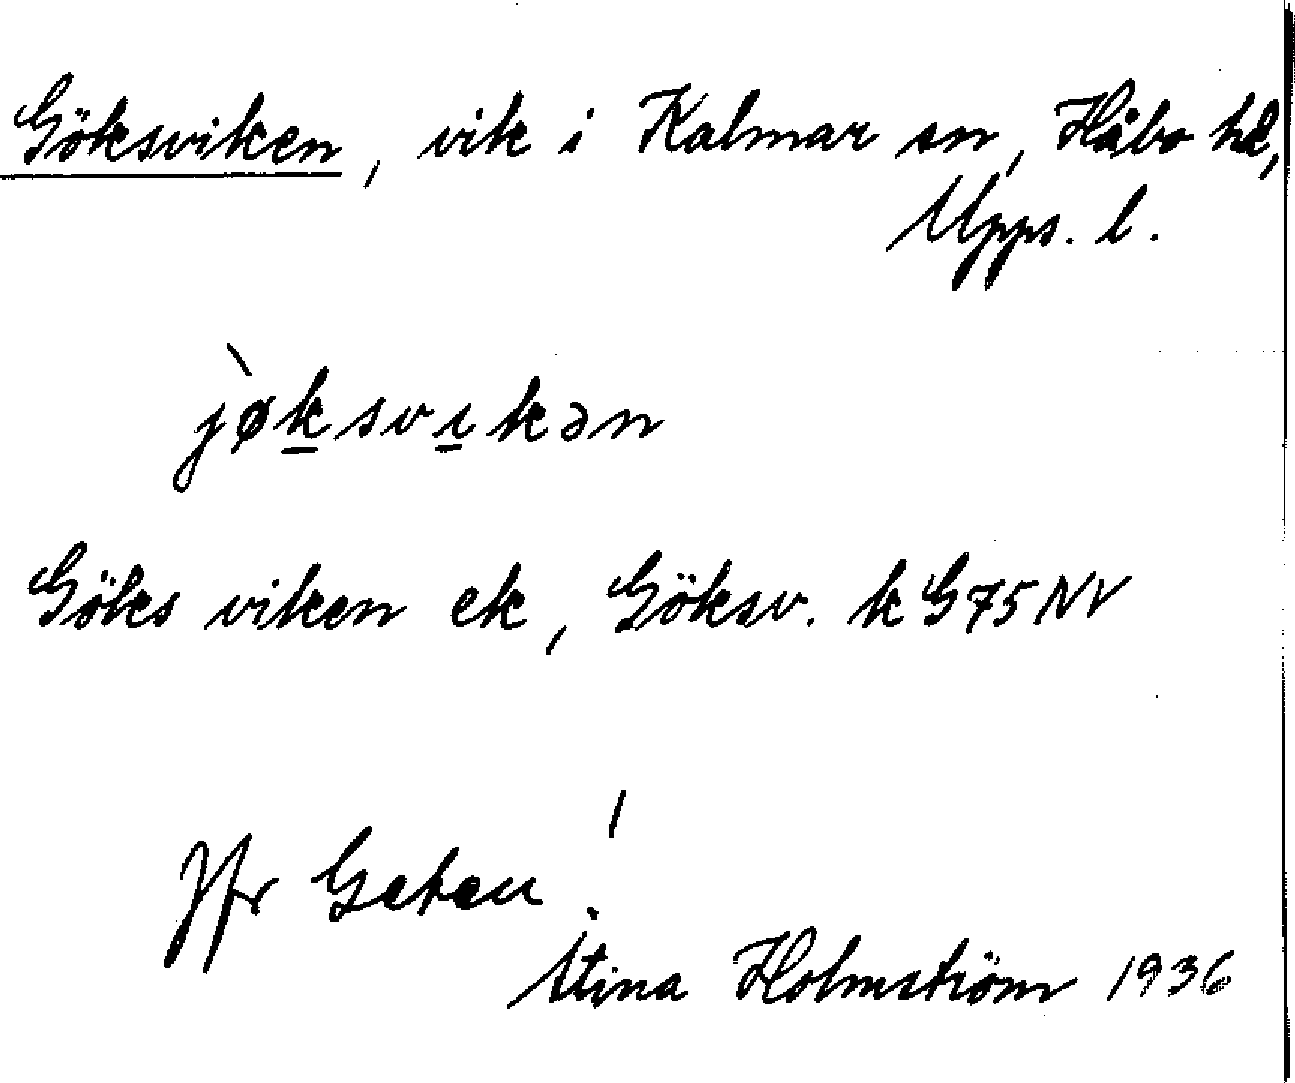 Göksviken, vik i Kalmar sn, Håbo hd,
Upps. l.
jø̀k̲svı̲kən
Göks viken ek, Göksv. k G75NV
Jfr Gatan!
Stina Holmström 1936